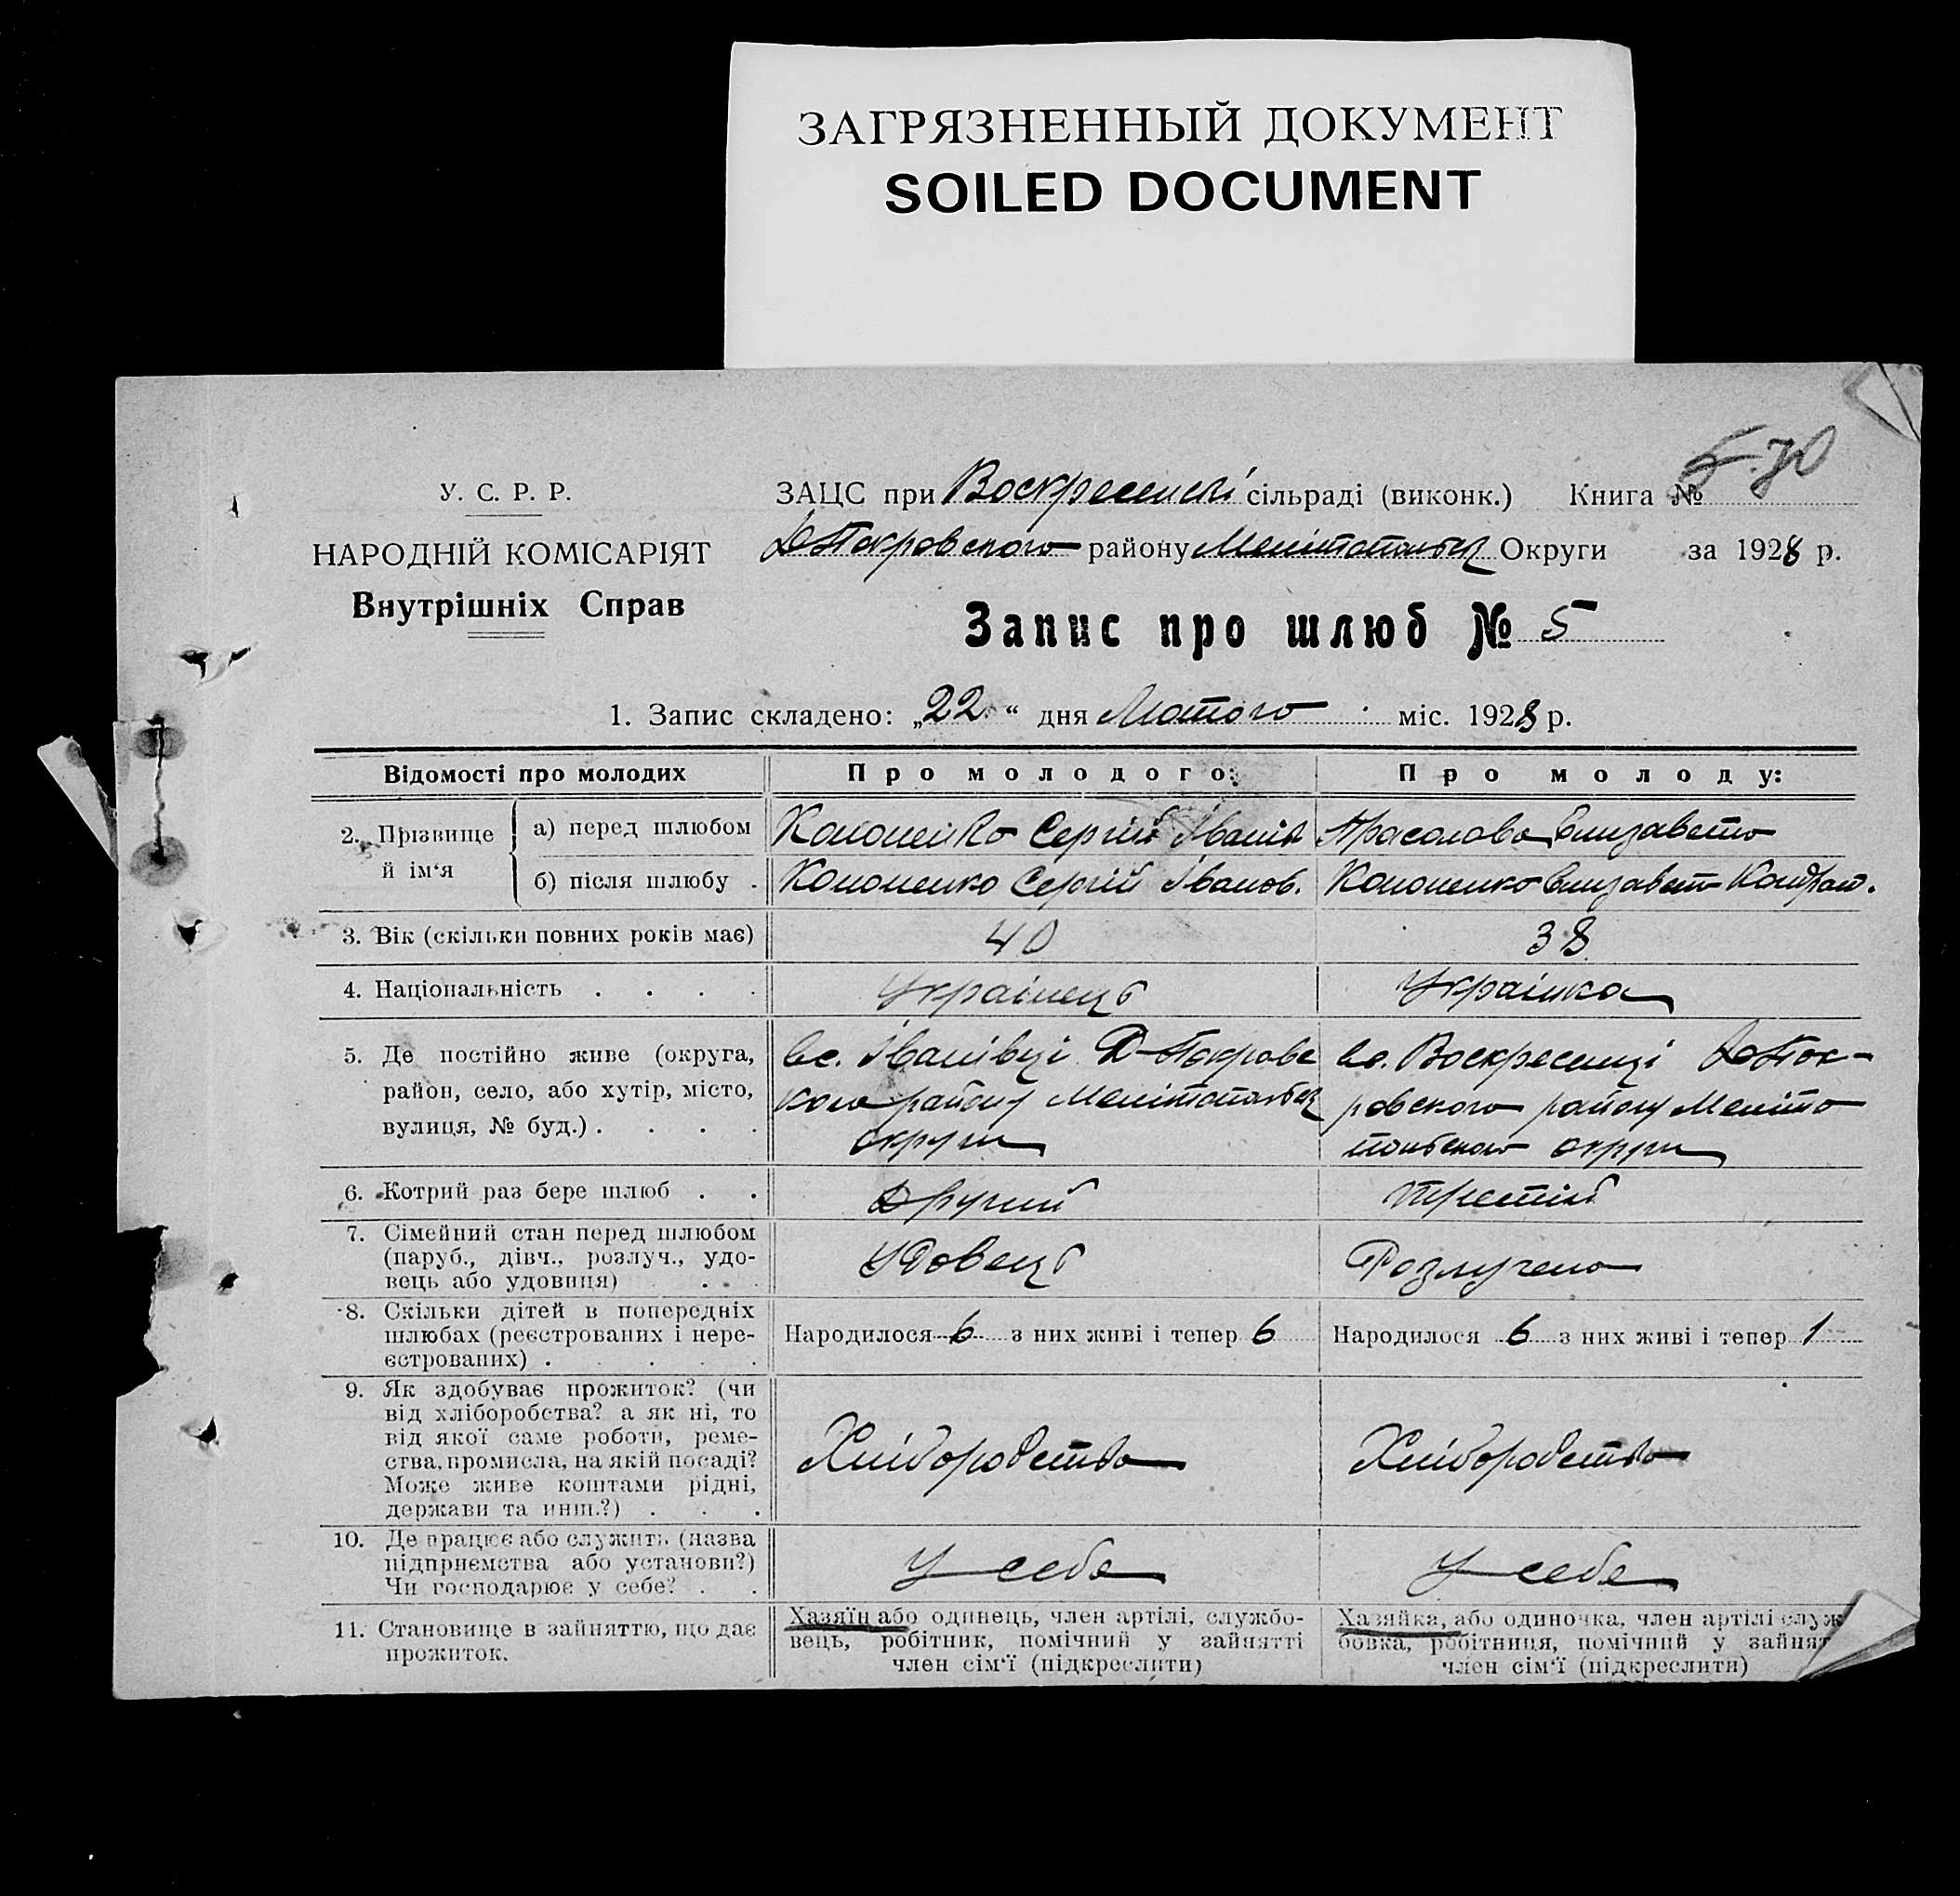 ЗАГРЯЗНЕННЫЙ ДОКУМЕНТ
SOILED DOCUMENT
У. С. Р. Р.
НАРОДНІЙ КОМІСАРІЯТ
Внутрішніх Справ
ЗАЦС при Воскресенскі сільраді (виконк.) Книга №
Д-Покровского району Мелітопольск Округи за 1928 р.
Запис про шлюб № 5
1. Запис складено: „22“ дня Лютого міс. 1928 р.
Відомості про молодих
Про молодого:
Про молоду:
2. Прізвище й ім‘я
а) перед шлюбом
Кононенко Сергій Іванів
Прасолова Єлизавета
б) після шлюбу .
Кононенко Сергій Іванов.
Кононенко Єлизавет Кондрат.
3. Вік (скільки повних років має)
40
38
4. Національність . . . .
Українець
Українка
5. Де постійно живе (округа,
район, село, або хутір, місто,
вулиця, № буд.) . . . .
в с. Іванівці Д-Покровс
кого району Мелітопольск
округи
в с. Воскресенці Д-Пок-
ровского району Меліто
польского округи
6. Котрий раз бере шлюб . .
Другий
Третій
7. Сімейний стан перед шлюбом
(паруб., дівч., розлуч., удо-
вець або удовиця) . .
Удовець
Розлучена
8. Скільки дітей в попередніх
шлюбах (реєстрованих і нере-
єстрованих) . . . . .
Народилося 6 з них живі і тепер 6
Народилося 6 з них живі і тепер 1
9. Як здобуває прожиток? (чи
від хліборобства? а як ні, то
від якої саме роботи, реме-
ства, промисла, на якій посаді?
Може живе коштами рідні,
держави та инш.?) . . .
Хліборобство
Хліборобство
10. Де працює або служить (назва
підприємства або установи?)
Чи господарює у себе? . .
У себе
У себе
11. Становище в зайняттю, що дає
прожиток.
Хазяїн або одинець, член артілі, службо-
вець, робітник, помічний у зайнятті
член сім‘ї (підкреслити)
Хазяйка, або одиночка, член артілі служ
бовка, робітниця, помічний у зайнят
член сім‘ї (підкреслити)